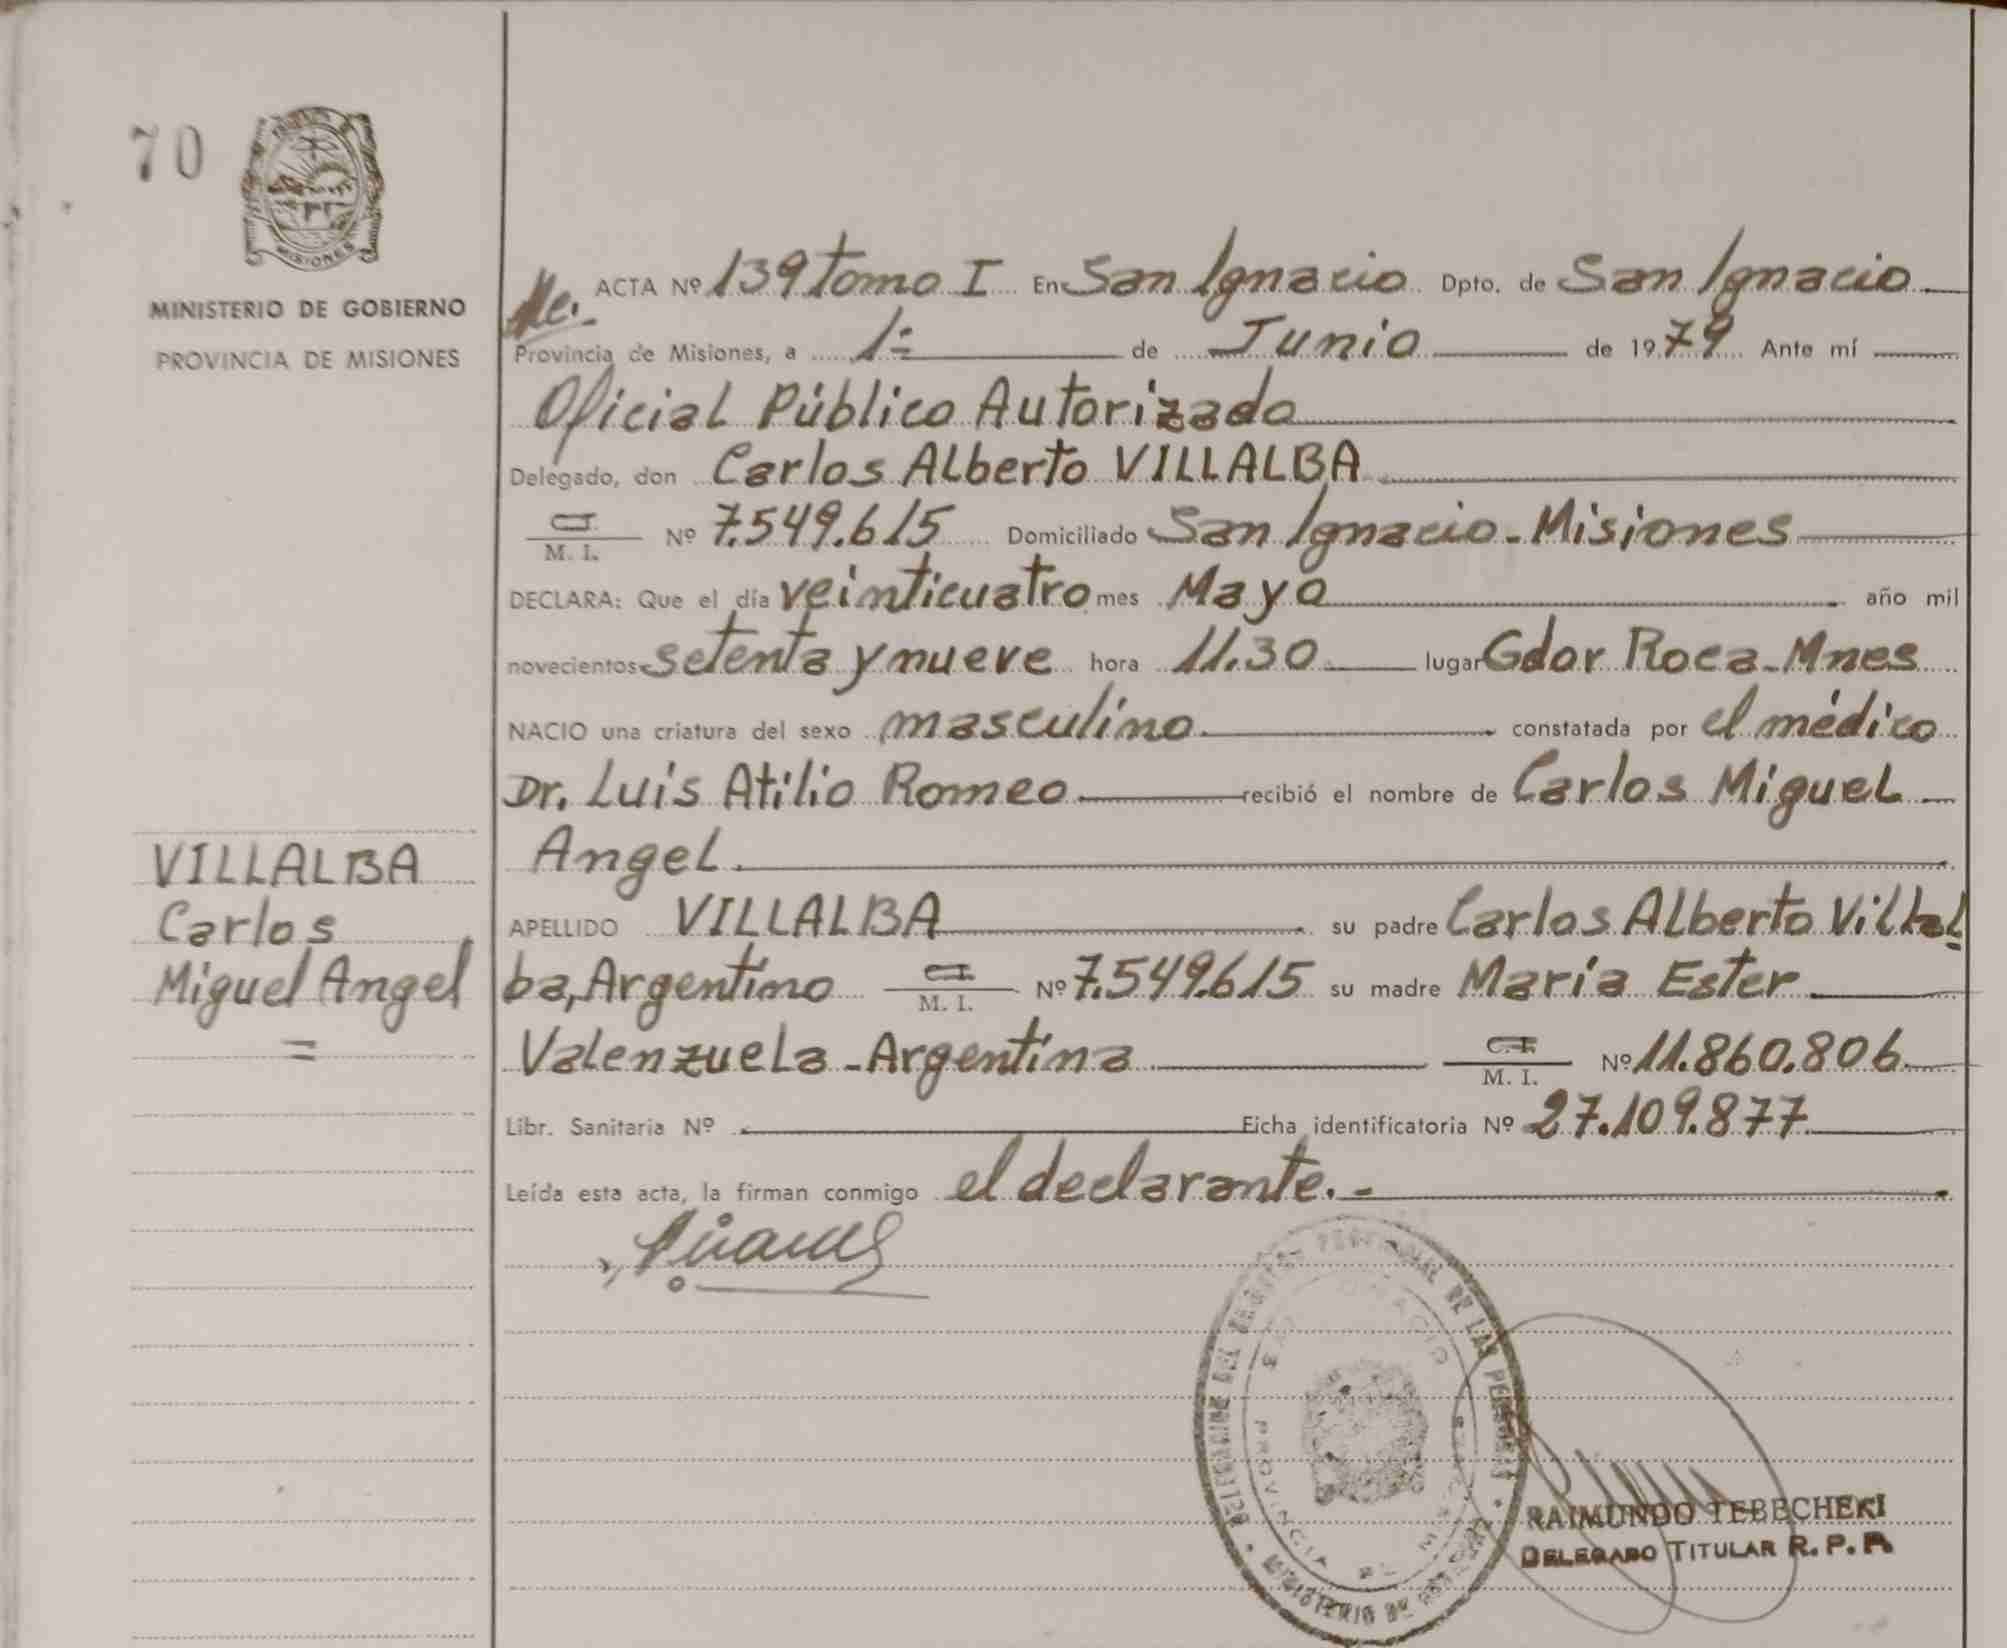 70
MISIONES
MINISTERIO DE GOBIERNO
PROVINCIA DE MISIONES
VILLALBA
Carlos
Miguel Angel
=
ACTA Nº 139 tomo I En San Ignacio Dpto. de San Ignacio
Provincia de Misiones, a 1= de Junio de 1979 Ante mí
Oficial Público Autorizado
Delegado, don Carlos Alberto VILLALBA
C.I. M. I. Nº 7.549.615 Domiciliado San Ignacio - Misiones
DECLARA: Que el día veinticuatro mes Mayo año mil
novecientos setenta y nueve hora 11.30 lugar Gdor Roca - Mnes
NACIO una criatura del sexo masculino constatada por el médico
Dr. Luis Atilio Romeo recibió el nombre de Carlos Miguel
Angel
APELLIDO VILLALBA su padre Carlos Alberto Villal
ba, Argentino C.I. M. I. Nº 7.549.615 su madre María Ester
Valenzuela - Argentina C.I. M. I. Nº 11.860.806
Libr. Sanitaria Nº Ficha identificatoria Nº 27.109.877
Leída esta acta, la firman conmigo el declarante. -
PROVINCIAL DE LAS PERSONAS
PROVINCIA DE
MINISTERIO DE
RAIMUNDO TEBECHEKI
DELEGADO TITULAR R. P. P.